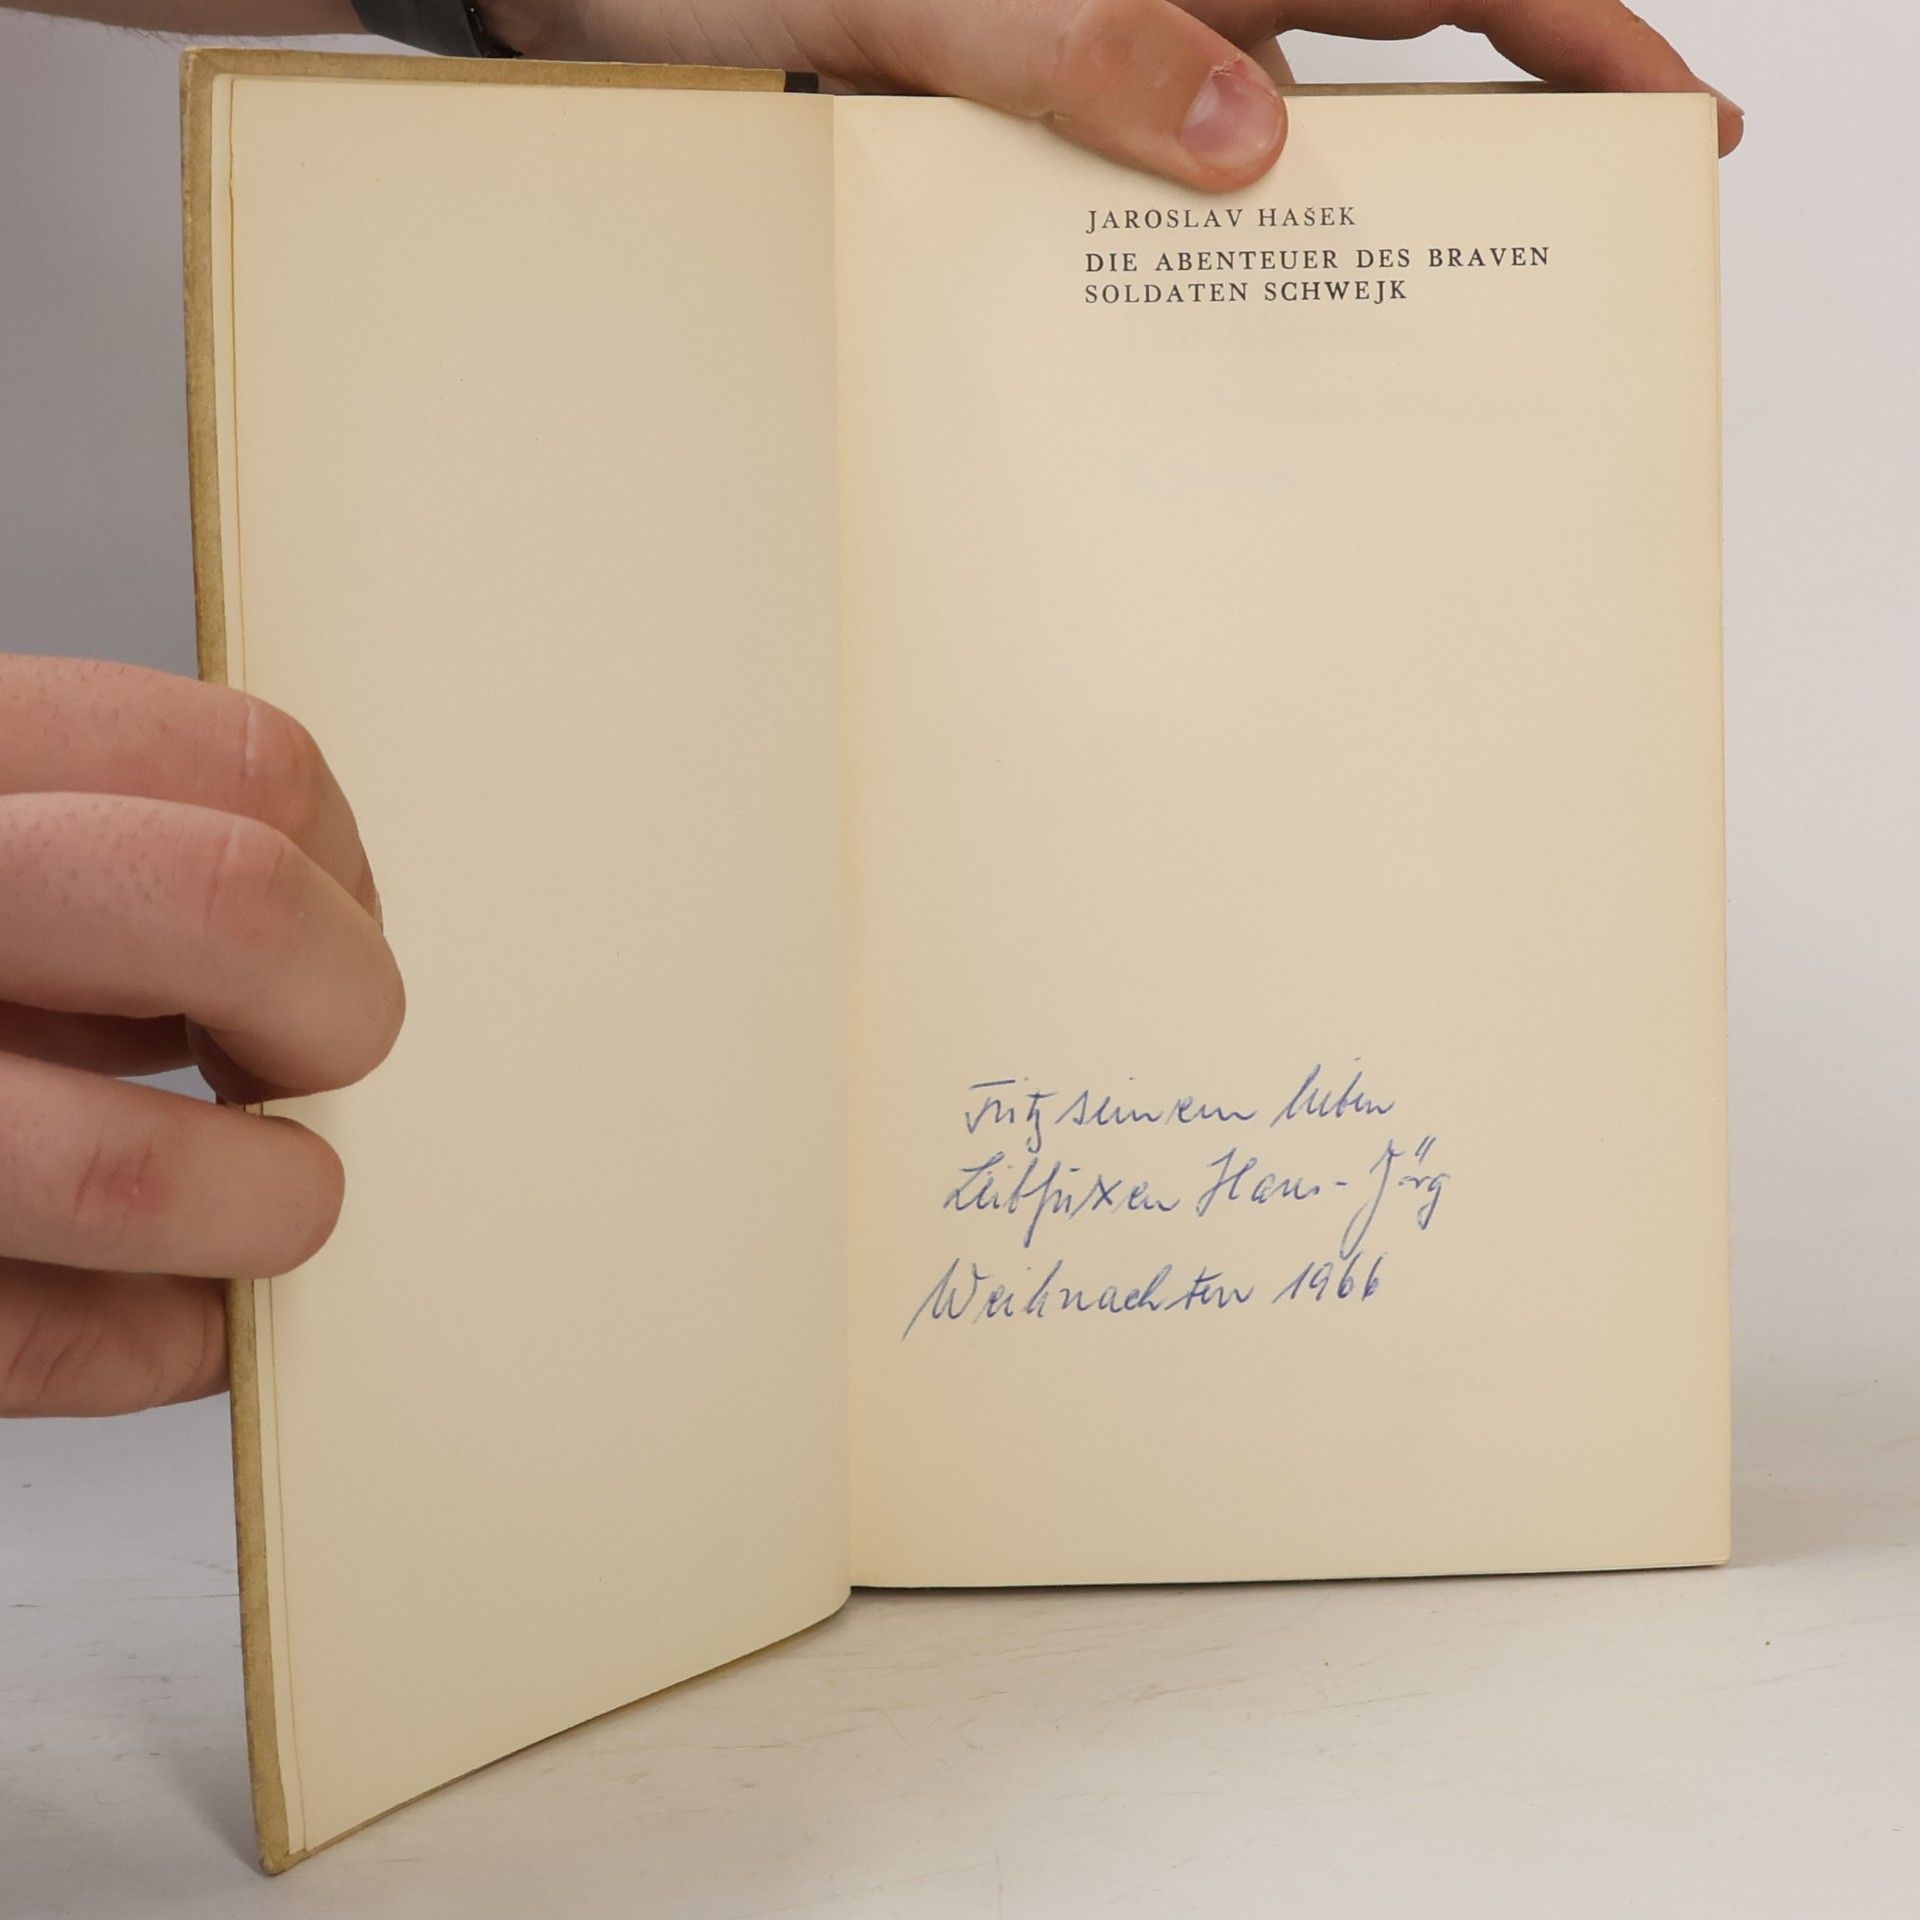 JAROSLAV HAŠEK
DIE ABENTEUER DES BRAVEN
SOLDATEN SCHWEJK
Fritz seinem lieben
Leibfuxen Hans-Jörg
Weihnachten 1966